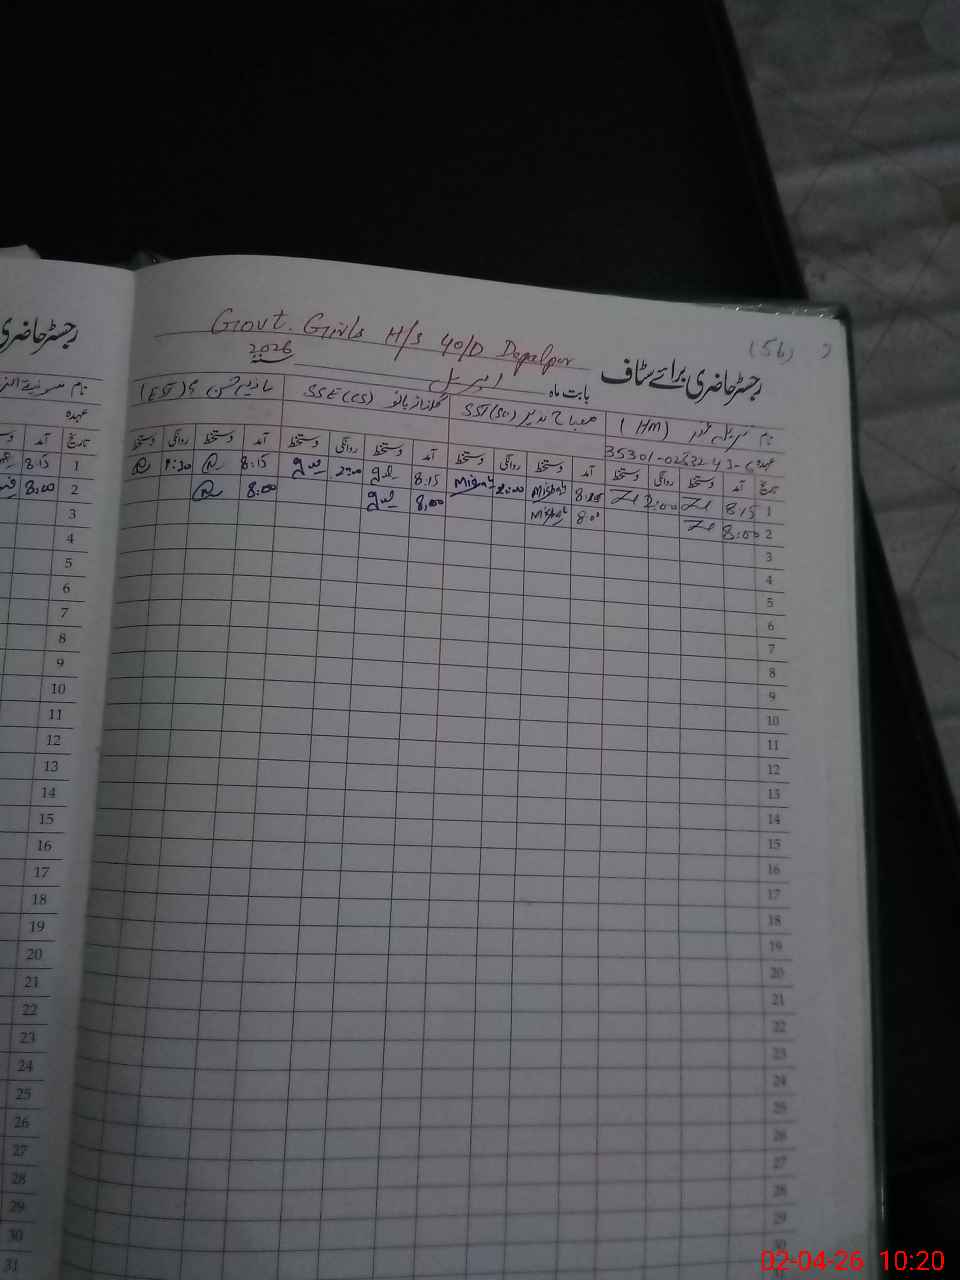 Govt. Girls H/S 40/D Depalpur
2026
رجسٹر حاضری برائے سٹاف
(56)
بابت ماہ اپریل
رجسٹر حاضری
نام (HM) مصباح نذیر SST(Sc) گلناز بانو SSE(CS) (EST)
عہدہ
35301-0
تاریخ آمد دستخط روانگی دستخط آمد دستخط روانگی دستخط آمد دستخط روانگی دستخط آمد دستخط روانگی دستخط
1 8:15 2:00 Misbah 2:00 Misbah 8.15 گل 2:00 گل 8:15
2 8:00 Misbah 8.00 گل 8:00
3
4
5
6
7
8
9
10
11
12
13
14
15
16
17
18
19
20
21
22
23
24
25
26
27
28
29
30
نام
عہدہ
تاریخ آمد
1 8:15
2 8:00
3
4
5
6
7
8
9
10
11
12
13
14
15
16
17
18
19
20
21
22
23
24
25
26
27
28
29
30
31
02-04-26 10:20